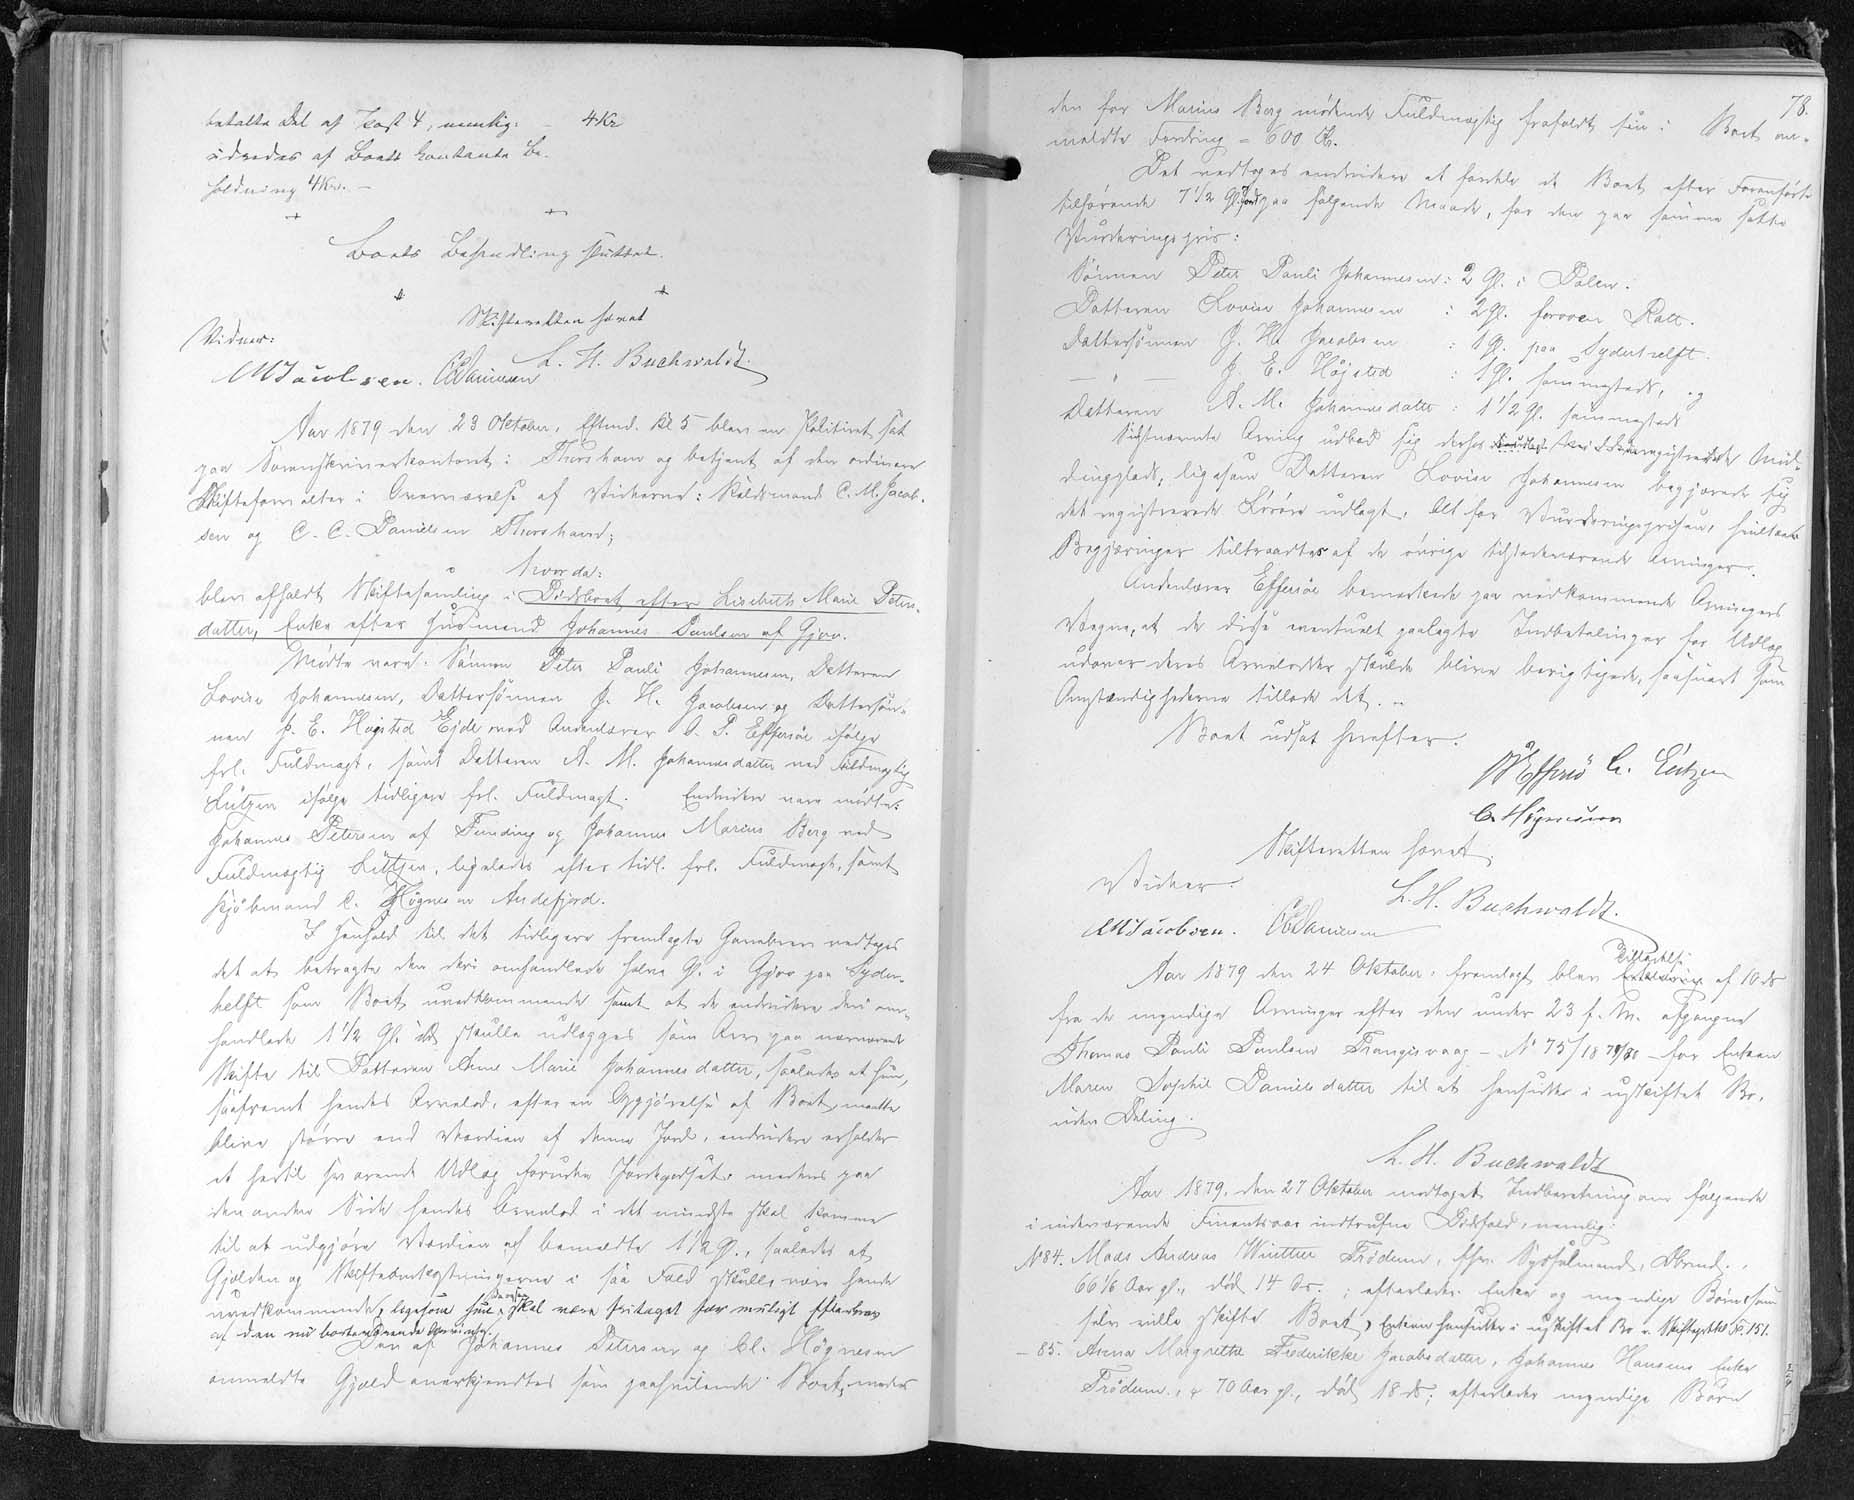 betalte Del af Post 4, nemlig: - 4 Kr
udredes af Boets kontante Be-
holdning 4 Kr. -
Boets Behandling sluttet.
Skifteretten hævet
Vidner:
L. H. Buchwaldt.
CMJacobsen. CCDanielsen
Aar 1879 den 23 Oktober, Eftmd. Kl 5 blev en Skifteret sat
paa Sorenskriverkontoret i Thorshavn og betjent af den ordinære
Skifteforvalter i Overværelse af Vidnerne: Skildmand C. M. Jacob-
sen og C. C. Danielsen Thorshavn;
hvorda:
blev afholdt Skiftesamling i Dødsboet efter Lisebeth Marie Peters-
datter, Enke efter Husmand Johannes Paulsen af Gjov.
Mødte vare: Sønnen Peter Pauli Johannesen, Datteren
Lovise Johannesen, Dattersønnen J. H. Jacobsen og Dattersøn-
nen J. E. Højsted Ejde ved Andenlærer P. Effersöe ifølge
frl. Fuldmagt, samt Datteren A. M. Johannesdatter ved Fuldmægtig
Lützen ifølge tidligere frl. Fuldmagt. Endvidere vare mødte:
Johannes Petersen af Funding og Johannes Marius Berg ved
Fuldmægtig Lützen, ligeledes efter tidl. frl. Fuldmagt, samt
Kjøbmand C. Høgnesen Andefjord.
I Henhold til det tidligere fremlagte Gavebrev vedtoges
det at betragte den deri omhandlede halve Gl. i Gjov paa Syder-
helft som Boet uvedkommende samt at de endvidere deri om-
handlede 1 1/2 Gl. skulle udlægges som Arv paa nærværende
Skifte til Datteren Anne Marie Johannesdatter, saaledes at hun,
saafremt hendes Arvelod, efter en Opgjørelse af Boet, maatte
blive større end Værdien af denne Jord, endvidere erholder
et hertil svarende Udlæg foruden Jordegodset, medens paa
den anden Side hendes Arvelod i det mindste skal komme
til at udgjøre Værdien af bemeldte 1 1/2 Gl., saaledes at
Gjælden og Skifteomkostningerne i saa Fald skulle være hende
uvedkommende, ligesom hun skal være fritaget for muligt Efterkrav
af den nu bortværende Arving.
Den af Johannes Petersen og Cl. Høgnesen
anmeldte Gjæld anerkjendtes som paahvilende Boet, medens
78.
den for Marius Berg mødende Fuldmægtig frafaldt sin i Boet an-
meldte Fordring = 600 Kr.
Det vedtoges endvidere at fordele de Boet efter Foranførte
tilhørende 7 1/2 Gl. Jord paa følgende Maade, for den paa samme satte
Vurderingspris:
Sønnen Peter Pauli Johannesen: 2 Gl. i Dalen.
Datteren Lovise Johannesen : 2 Gl. foroven Ratt.
Dattersønnen J. H. Jacobsen : 1 Gl. paa Syderhelft.
— " — J. E. Højsted : 1 Gl. sammesteds, og
Datteren A. M. Johannesdatter : 1 1/2 Gl. sammesteds
Sidstnævnte Arving udbad sig derhos den registrerede Møl-
dingplads, ligesom Datteren Lovise Johannesen begjærede sig
det registrerede Løsøre udlagt, Alt for Vurderingsprisen, hvilke
Begjæringer tiltraadtes af de øvrige tilstedeværende Arvinger.
Andenlærer Effersöe bemærkede paa vedkommende Arvingers
Vegne, at de disse eventuelt paalagte Indbetalinger for Udlæg
udover deres Arvelodder skulde blive berigtigede, saasnart som
Omstændighederne tillode det.
Boet udsat herefter.
P Effersö C. Lützen
C. Høgnesen
Skifteretten hævet
Vidner.
L. H. Buchwaldt.
CMJacobsen. CCDanielsen
Aar 1879 den 24 Oktober, fremlagt blev Tilladelse af 10 ds
fra de myndige Arvinger efter den under 23 f. M. afgangne
Thomas Pauli Poulsen Frangisvaag - No 75/18 79/80 - for Enken
Maren Sophie Danielsdatter til at hensidde i uskiftet Bo,
uden Deling.
L. H. Buchwaldt
Aar 1879, den 27 Oktober modtoges Indberetning om følgende
i indeværende Finantsaar indtrufne Dødsfald, nemlig:
No 84. Mads Andreas Winther Frödum, fhv. Sysselmand, Dbrmd.,
66 1/6 Aar gl., død 14 ds.; efterlader Enke og myndige Børn, som
selv ville skifte Boet, Enken hensidder i uskiftet Bo v. Skifteprtkl. Fo. 151.
- 85. Anna Margrethe Frederikke Jacobsdatter, Johannes Hansens Enke
Frödum, c 70 Aar gl., død 18 ds; efterlader myndige Børn